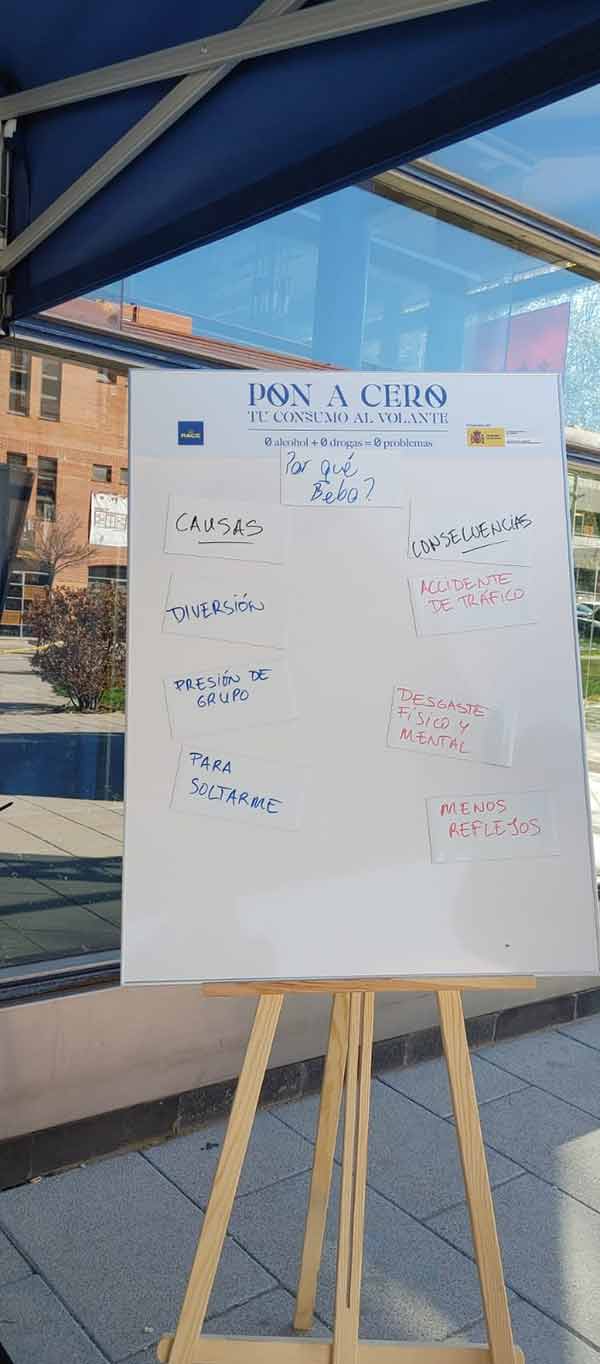 PON A CERO
TU CONSUMO AL VOLANTE
0 alcohol + 0 drogas = 0 problemas
RACE
Por qué
Bebo?
CAUSAS
DIVERSIÓN
PRESIÓN DE
GRUPO
PARA
SOLTARME
CONSECUENCIAS
ACCIDENTE
DE TRÁFICO
DESGASTE
FÍSICO Y
MENTAL
MENOS
REFLEJOS